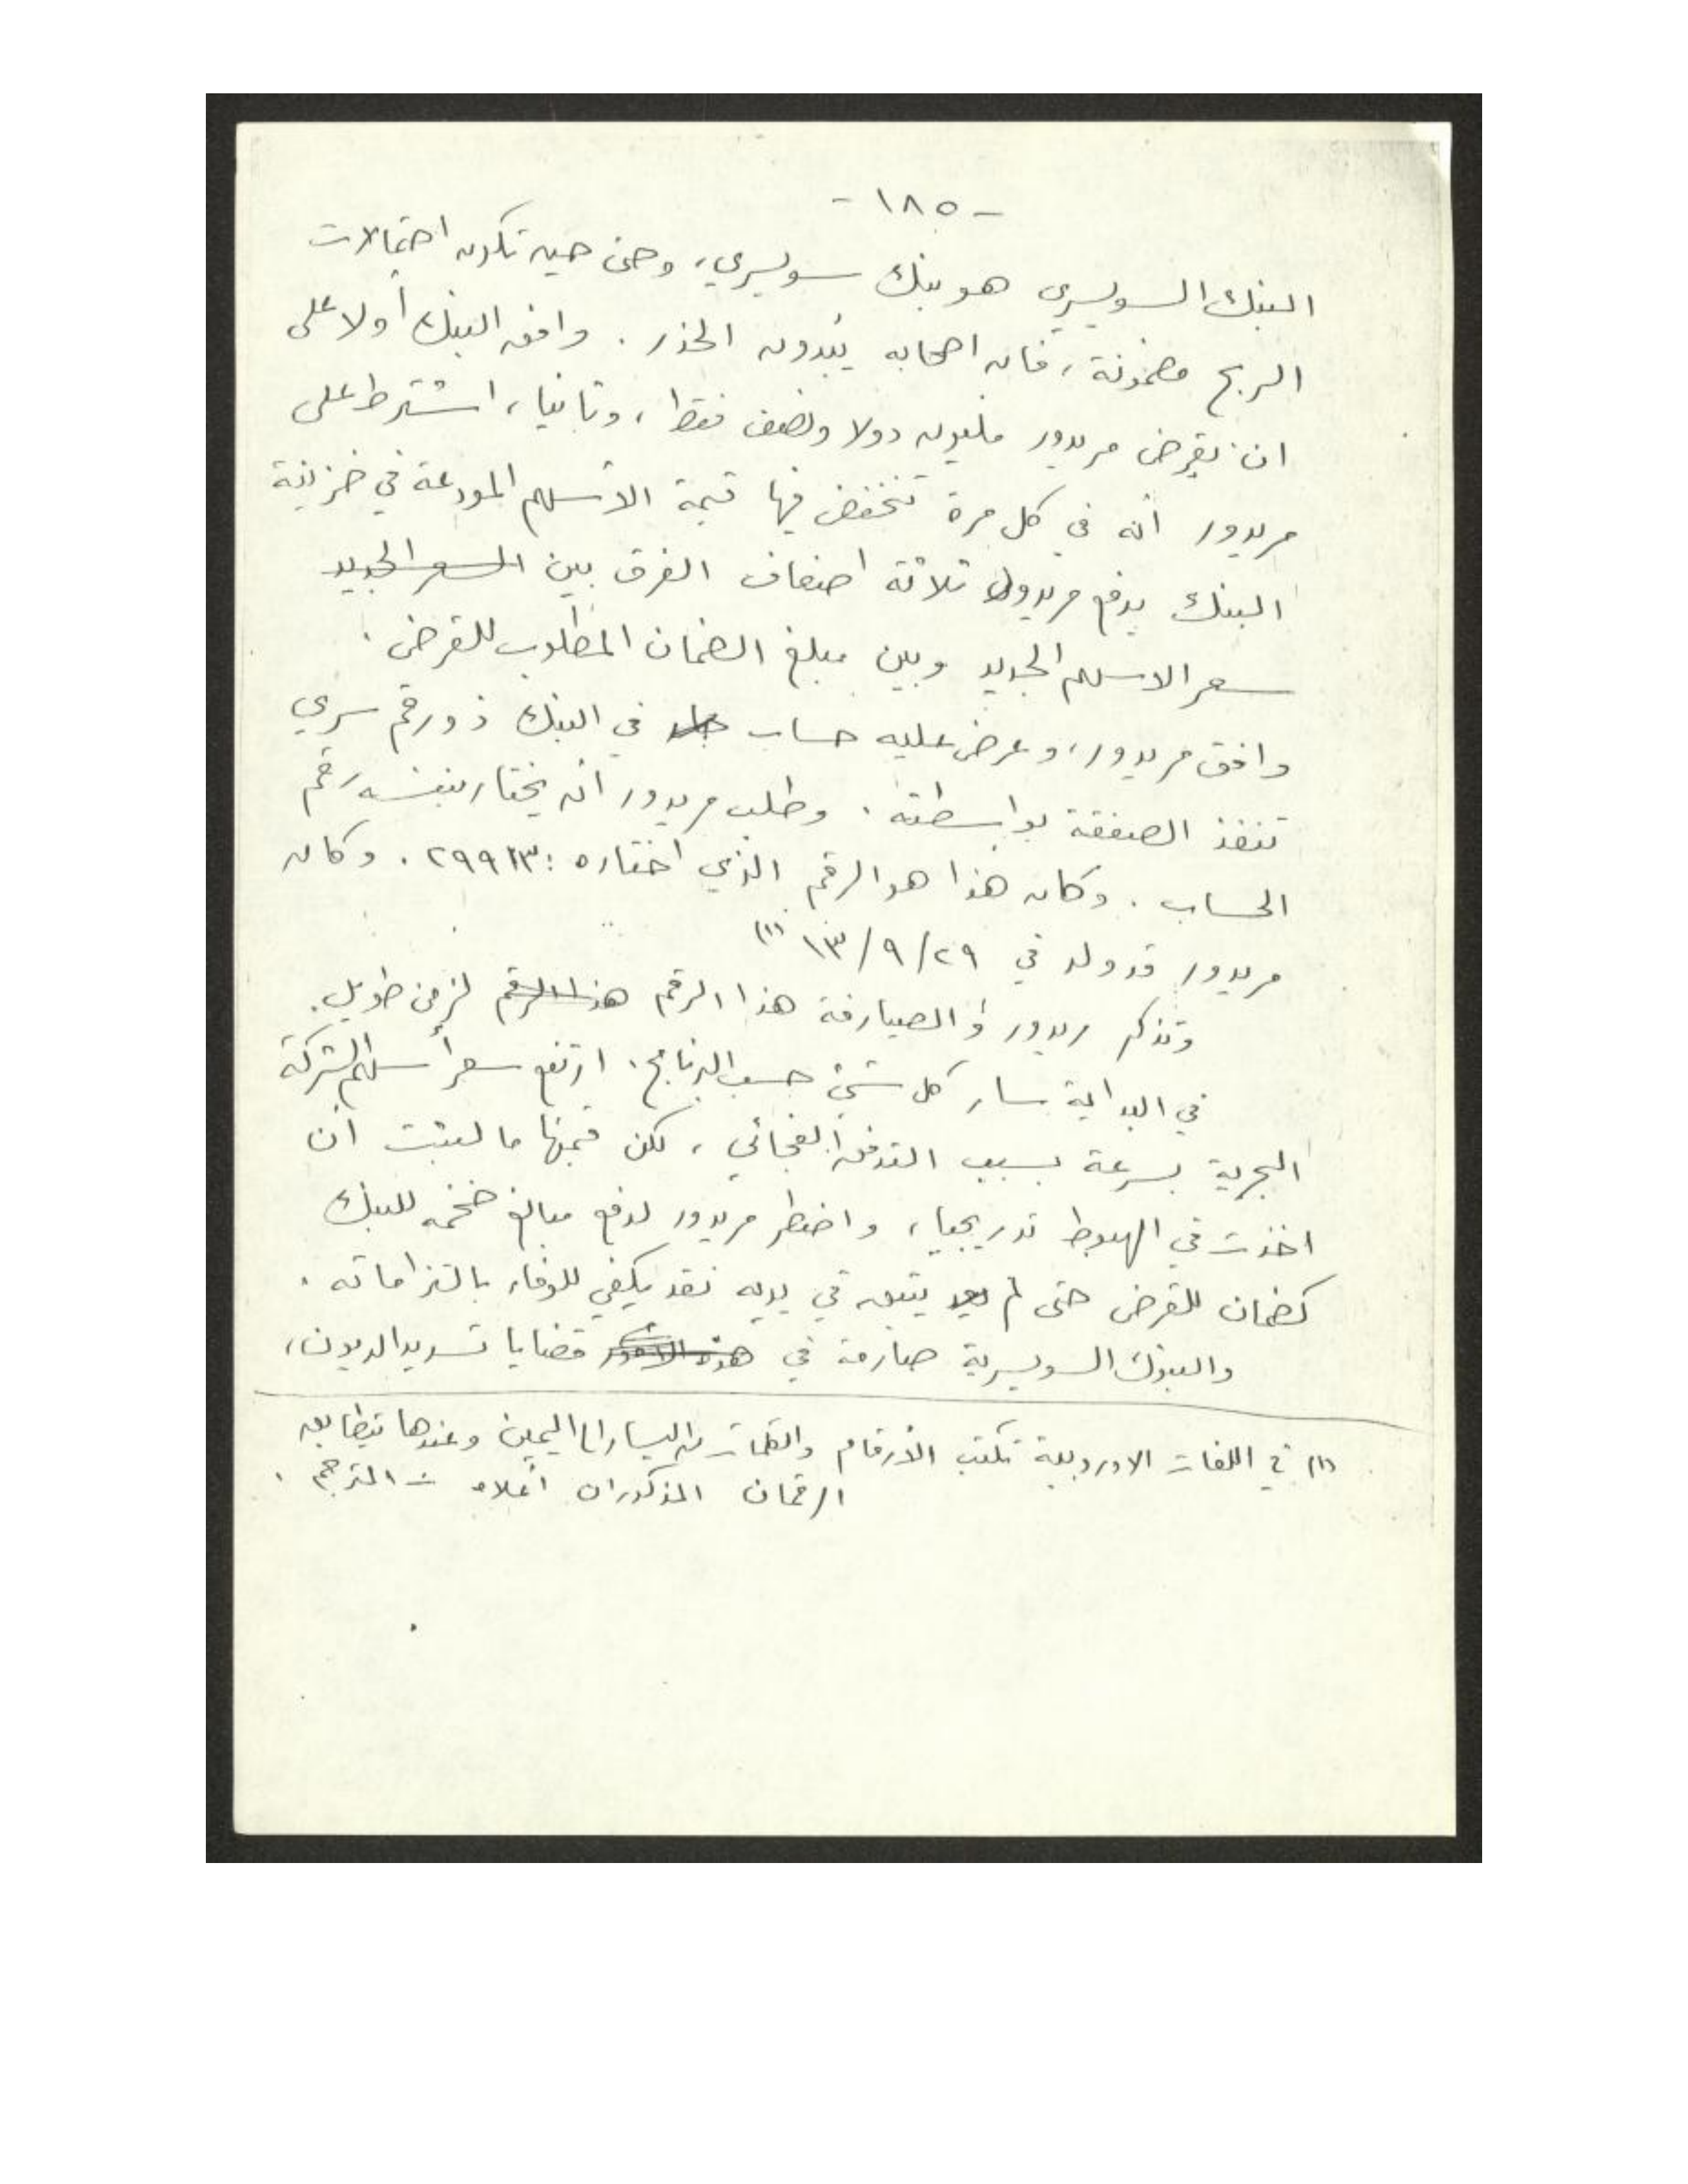 - ١٨٥ -
البنك السويسري هو بنك سويسري، وحتى حين تكون احتمالات
الربح مضمونة، فان اصحابه يبدون الحذر. وافق البنك أولا على
ان يقرض مريدور مليون دولا ونصف فقط، وثانيا، اشترط على
مريدور أنه في كل مرة تنخفض فيها قيمة الاسهم المودعة في خزينة
البنك يدفع مريدور ثلاثة اضعاف الفرق بين السعر الجديد
سعر الاسهم الجديد وبين مبلغ الضمان المطلوب للقرض.
وافق مريدور، وعرض عليه حساب في البنك ذو رقم سري
تنفذ الصفقة بواسطته. وطلب مريدور ان يختار بنفسه رقم
الحساب. وكان هذا هو الرقم الذي اختاره: ٢٩٩١٣. وكان
مريدور قد ولد في ٢٩/٩/١٣ (١)
وتذكر ريدور و الصيارفة هذا الرقم هذا الرقم لزمن طويل.
في البداية سار كل شيء حسب البرنامج. ارتفع سعر أسهم الشركة
البحرية بسرعة بسبب التدفق الفجائي، لكن قيمتها ما لبثت ان
اخذت في الهبوط تدريجيا، واضطر مريدور لدفع مبالغ ضخمه للبنك
كضمان للقرض حتى لم يعد يتبق في يديه نقد يكفي للوفاء بالتزاماته.
والبنوك السويسرية صارمة في هذه الامور قضايا تسديد الديون،
(١) في اللغات الاوروبية تكتب الأرقام والكلمات من اليسار الى اليمين وعندها يتطابق
الرقمان المذكوران أعلاه - المترجم.